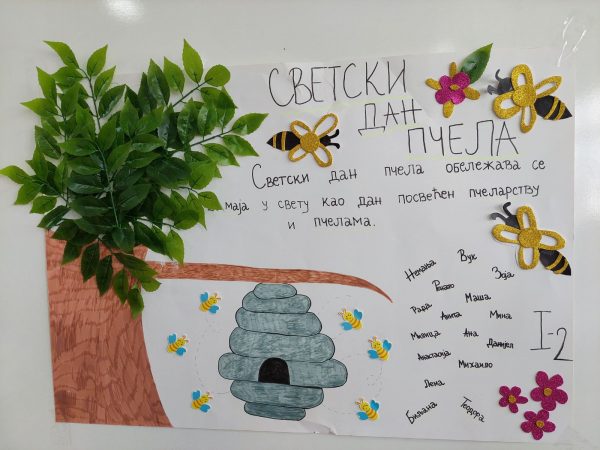 СВЕТСКИ
ДАН
ПЧЕЛА
Светски дан пчела обележава се
маја у свету као дан посвећен пчеларству
и пчелама.
Немања Вук Зоја
Рада Маша
Анита Мина
Милица Ана Данијел
Анастасија Михаило
Лена
Биљана Теодора
I-2